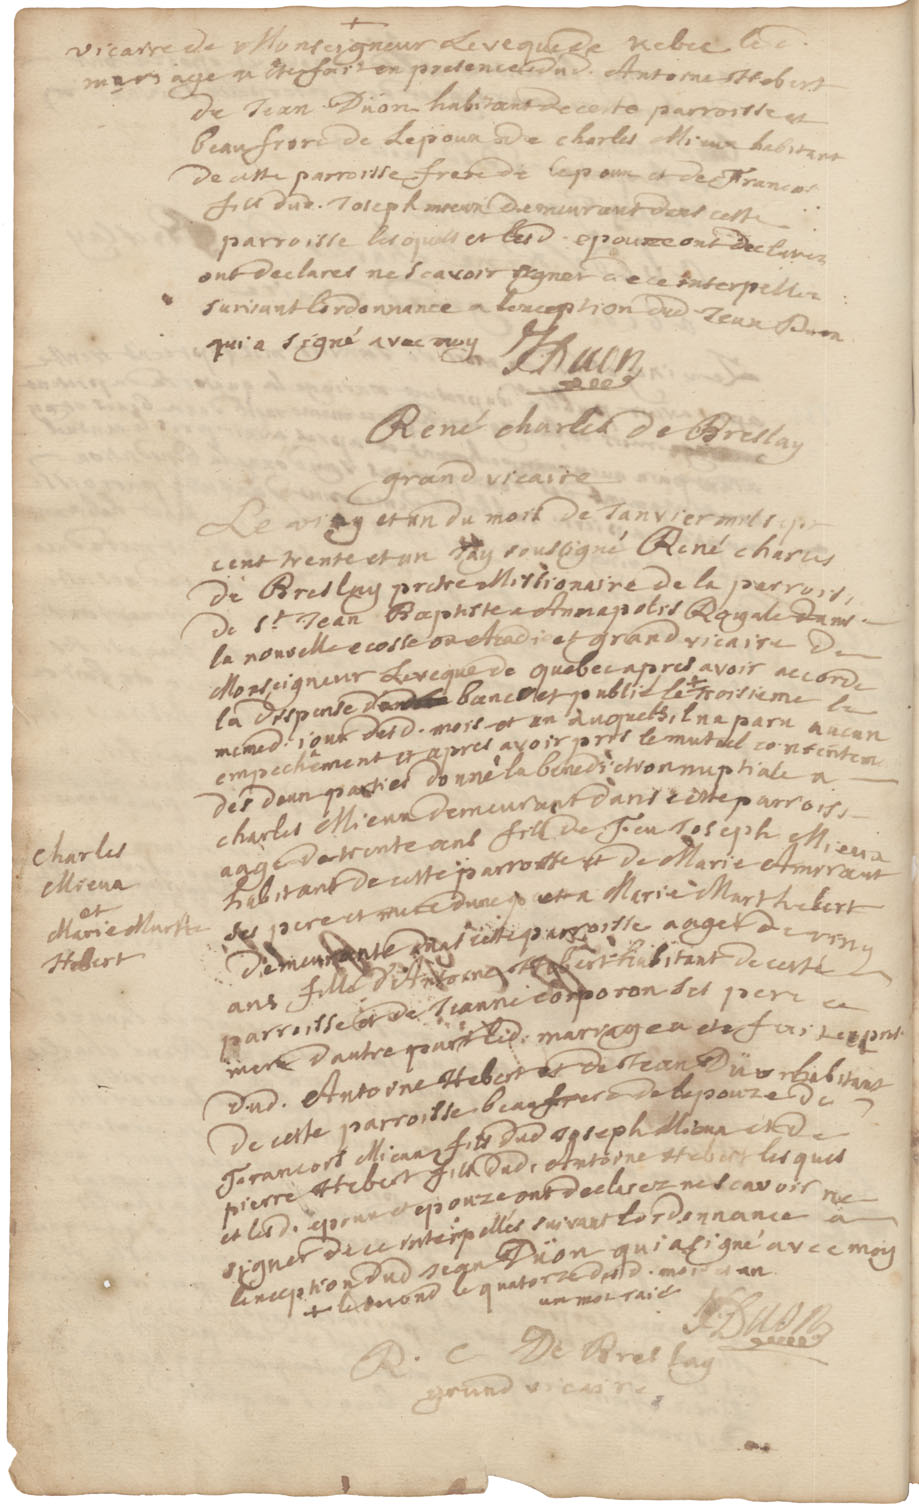 vicaire de Monseigneur Leveque de Kebec led.
mariage a ete fait en presence dud. Antoine Hebert
de Jean Düon habitant de ceste parroisse et
beaufrere de Lepoux de Charles Mieux habitant
de ceste parroisse frere de lepoux et de Francois
fils dud. Joseph mieux demeurant dans ceste
parroisse lesquels et lesd. epouze ont declarez
ont declares ne scavoir signer de ce interpellez
suivant lordonnance a lexception dud Jean Duon
qui a signé avec moy JDuon
René charles de Breslay
grand vicaire
Le vingt et un du mois de Janvier mil sept
cent trente et un Jay soussigné René charles
de Breslay pretre Missionaire de la parroiss.
de St. Jean Baptiste a Annapolis Royale dans
la nouvelle ecosse ou Acadie et grand vicaire de
Monseigneur Leveque de quebec apres avoir accordé
la dispense dun banc et publié le + troisieme le
memed. jour desd. mois et an auquels il na paru aucun
empechêment et apres avoir pris le mutuel consentem
des deux parties donné la benediction nuptiale a
charles Mieux demeurant dans ceste parroiss
aagé de trente ans fils de Feu Joseph Mieux
habitant de ceste parroisse et de Marie Amirraut
ses pere et mere dune part et a Marie Marthebert
demeurante dans ceste parroisse aagee de vingt
ans fille d'Antoine Hebert habitant de ceste
parroisse et de Jeanne corporon ses pere et
mere dautre part led. marriage a ete fait en pres
dud. Antoine Hebert et de Jean Düon habitant
de ceste parroisse beaufrere de lepouze de
Francois Mieux fils dud Joseph Mieux et de
pierre Hebert fils dud. Antoine Hebert lesquels
et lesd. epoux et epouze ont declarez ne scavoir
signer de ce interpellés suivant lordonnance a
lexception dud Jean Düon qui a signé avec moy
+ le second le quatorze desd. mois et an
un mot raié
JDuon
R. C De Breslay
grand vicaire
Charles
Mieux
et
Marie Marthe
Hebert